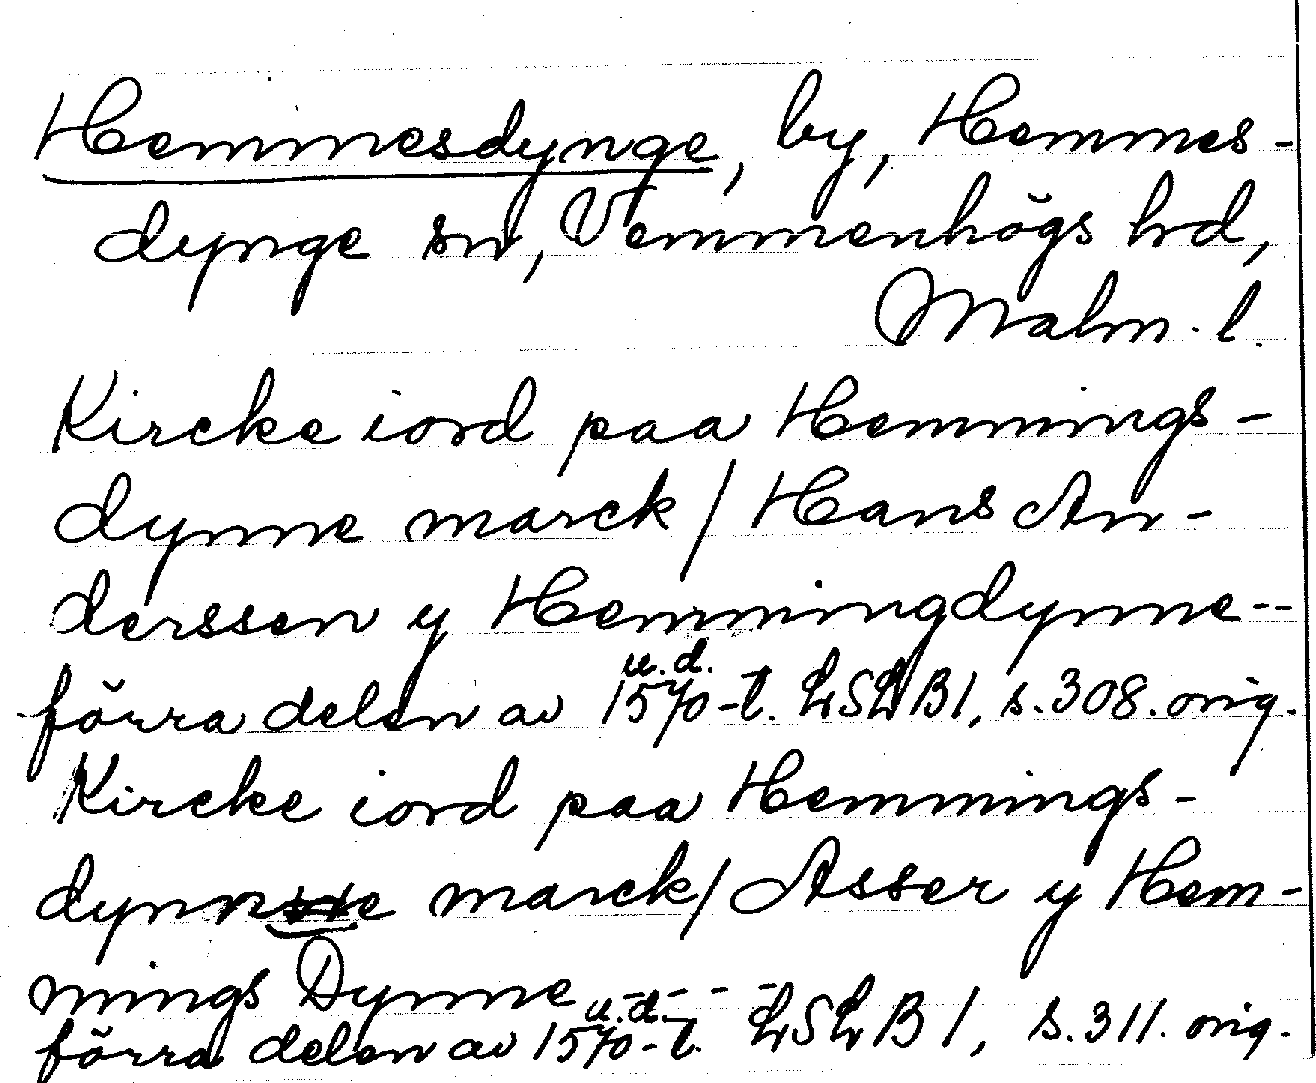 Hemmesdynge, by, Hemmes-
dynge sn, Vemmenhögs hd,
Malm. l.
Kircke iord paa Hemmings-
dynne marck / Hans An-
derssen y Hemmingdynne--
u.d.
förra delen av 1570-t. LSLB1, s.308. orig.
Kircke iord paa Hemmings-
dynne marck / Asser y Hem-
mings Dynne - - - -
u.d.
förra delen av 1570-t. LSLB1, s.311. orig.